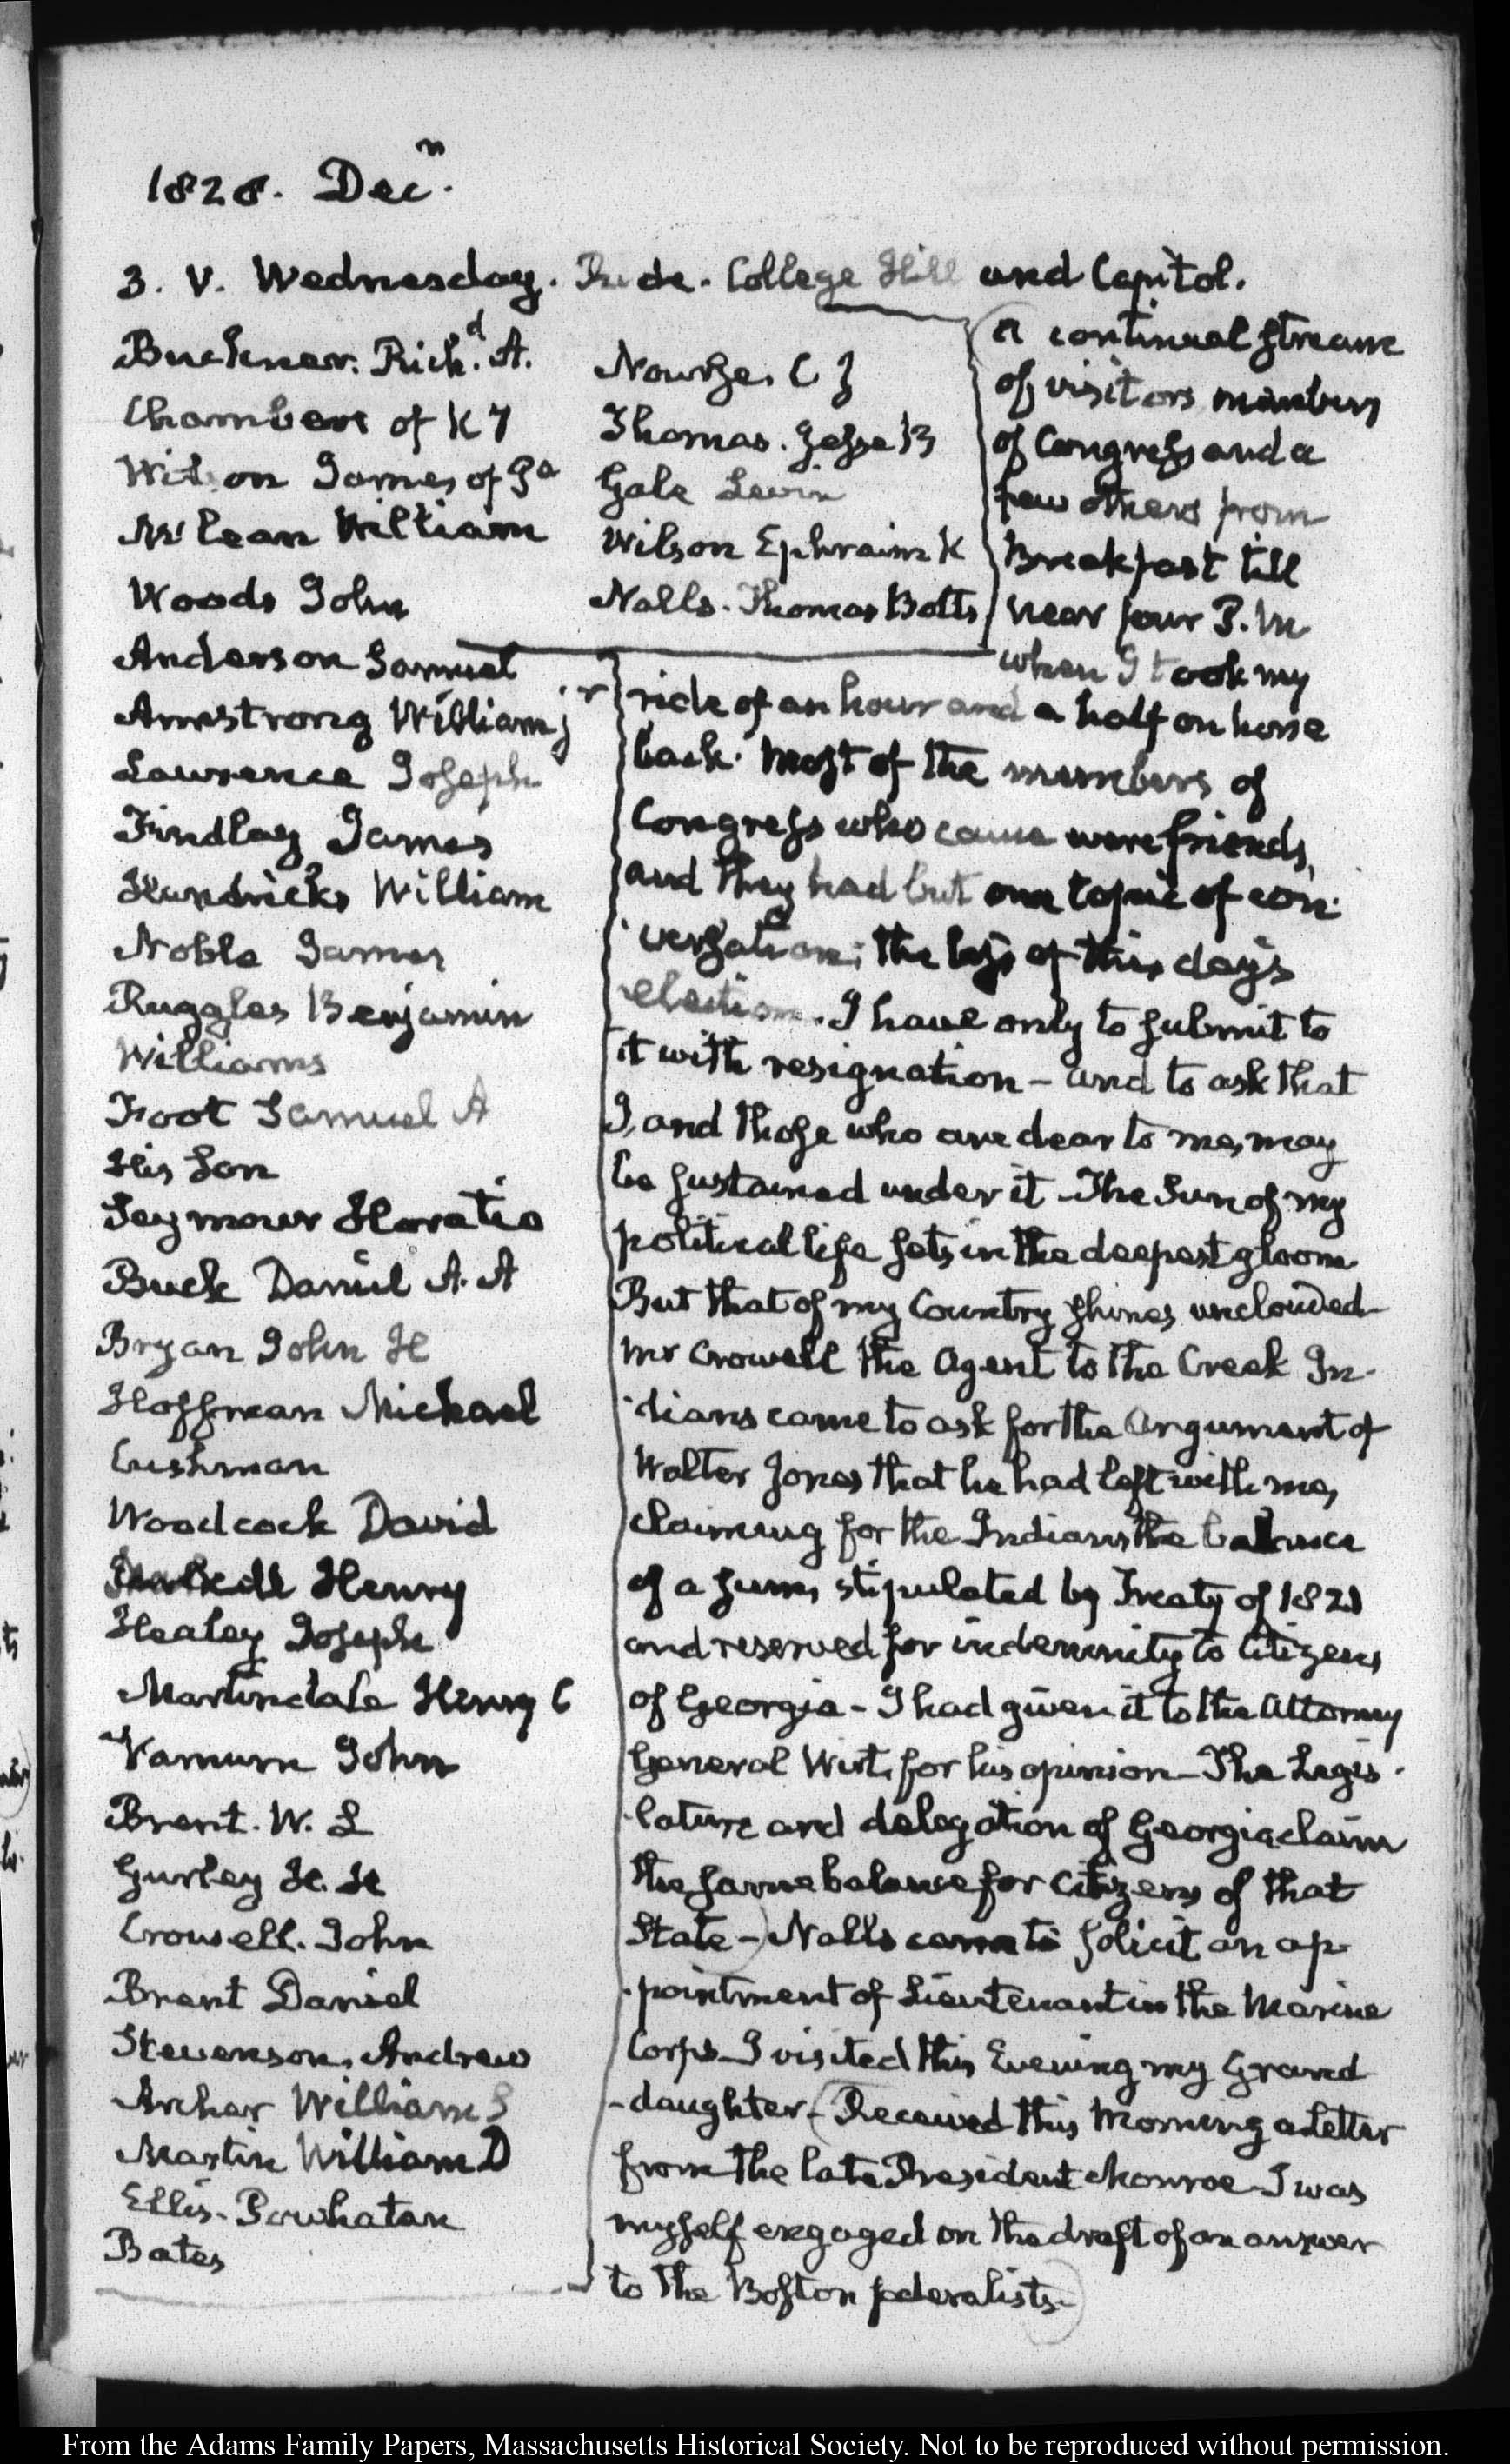 1828. Decr.
3. V. Wednesday. Ride. College Hill and Capitol.
Buckner. Richd. A.
Chambers of KY
Wilson James of Pa
McLean William
Woods John
Anderson Samuel
Armstrong William jr
Lawrence Joseph
Findlay James
Hendricks William
Noble James
Ruggles Benjamin
Williams
Foot Samuel A
His Son
Seymour Horatio
Buck Daniel A. A
Bryan John H
Hoffman Michael
Cushman
Woodcock David
Henry
Healey Joseph
Martindale Henry C
Varnum John
Brent. W. L
Gurley H. H
Crowell. John
Brent Daniel
Stevenson, Andrew
Archer William S
Martin William D
Ellis. Powhatan
Bates
Nourse, C J
Thomas. Jesse B
Gale Levin
Wilson Ephraim K
Nalls. Thomas Botts
A continual stream
of visitors members
of Congress and a
few others from
Breakfast till
near four P.M
when I took my
ride of an hour and a half on horse
back. Most of the members of
Congress who came were friends,
and they had but one topic of con-
-versation; the loss of this day's
election. I have only to submit to
it with resignation – and to ask that
I, and those who are dear to me, may
be sustained under it The Sun of my
political life sets in the deepest gloom
But that of my Country shines unclouded
Mr Crowell the Agent to the Creek In-
-dians came to ask for the Argument of
Walter Jones that he had left with me,
claiming for the Indians the balance
of a sum, stipulated by Treaty of 1821
and reserved for indemnity to Citizens
of Georgia – I had given it to the Attorney
General Wirt, for his opinion – The Legis-
-lature and delegation of Georgia claim
the same balance for Citizens of that
State – Nalls came to solicit an ap-
-pointment of Lieutenant in the Marine
Corps – I visited this Evening my Grand
-daughter – Received this Morning a Letter
from the late President Monroe – I was
myself engaged on the draft of an answer
to the Boston federalists –
From the Adams Family Papers, Massachusetts Historical Society. Not to be reproduced without permission.